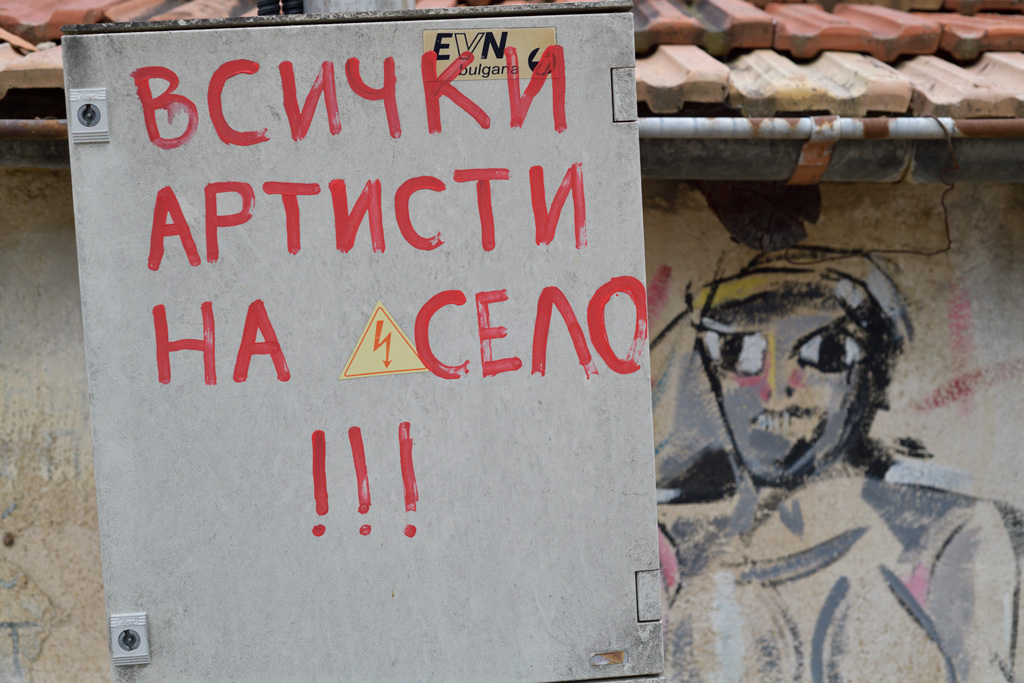 EVN
bulgaria
ВСИЧКИ
АРТИСТИ
НА СЕЛО
!!!